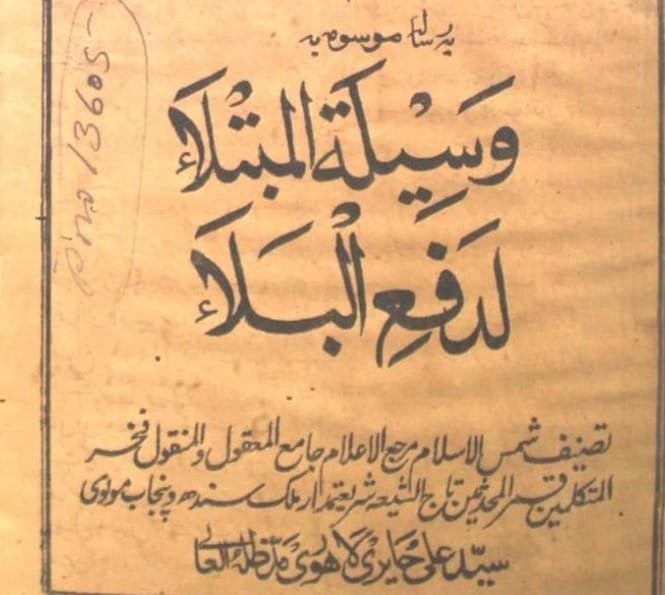 یہ رسالہ موسومہ بہ
وَسِیْلَةُ الْمُبْتَلَاءِ
لِدَفْعِ الْبَلَاءِ
تصنیف شمس الاسلام مرجع الاعلام جامع المعقول والمنقول فخر
المتکلمین قمر المحدثین تاج الشیعہ شریعتمدار ملک سندھ و پنجاب مولوی
سیّد علی حایری لاھوری مدّ ظلہ العالی
13605